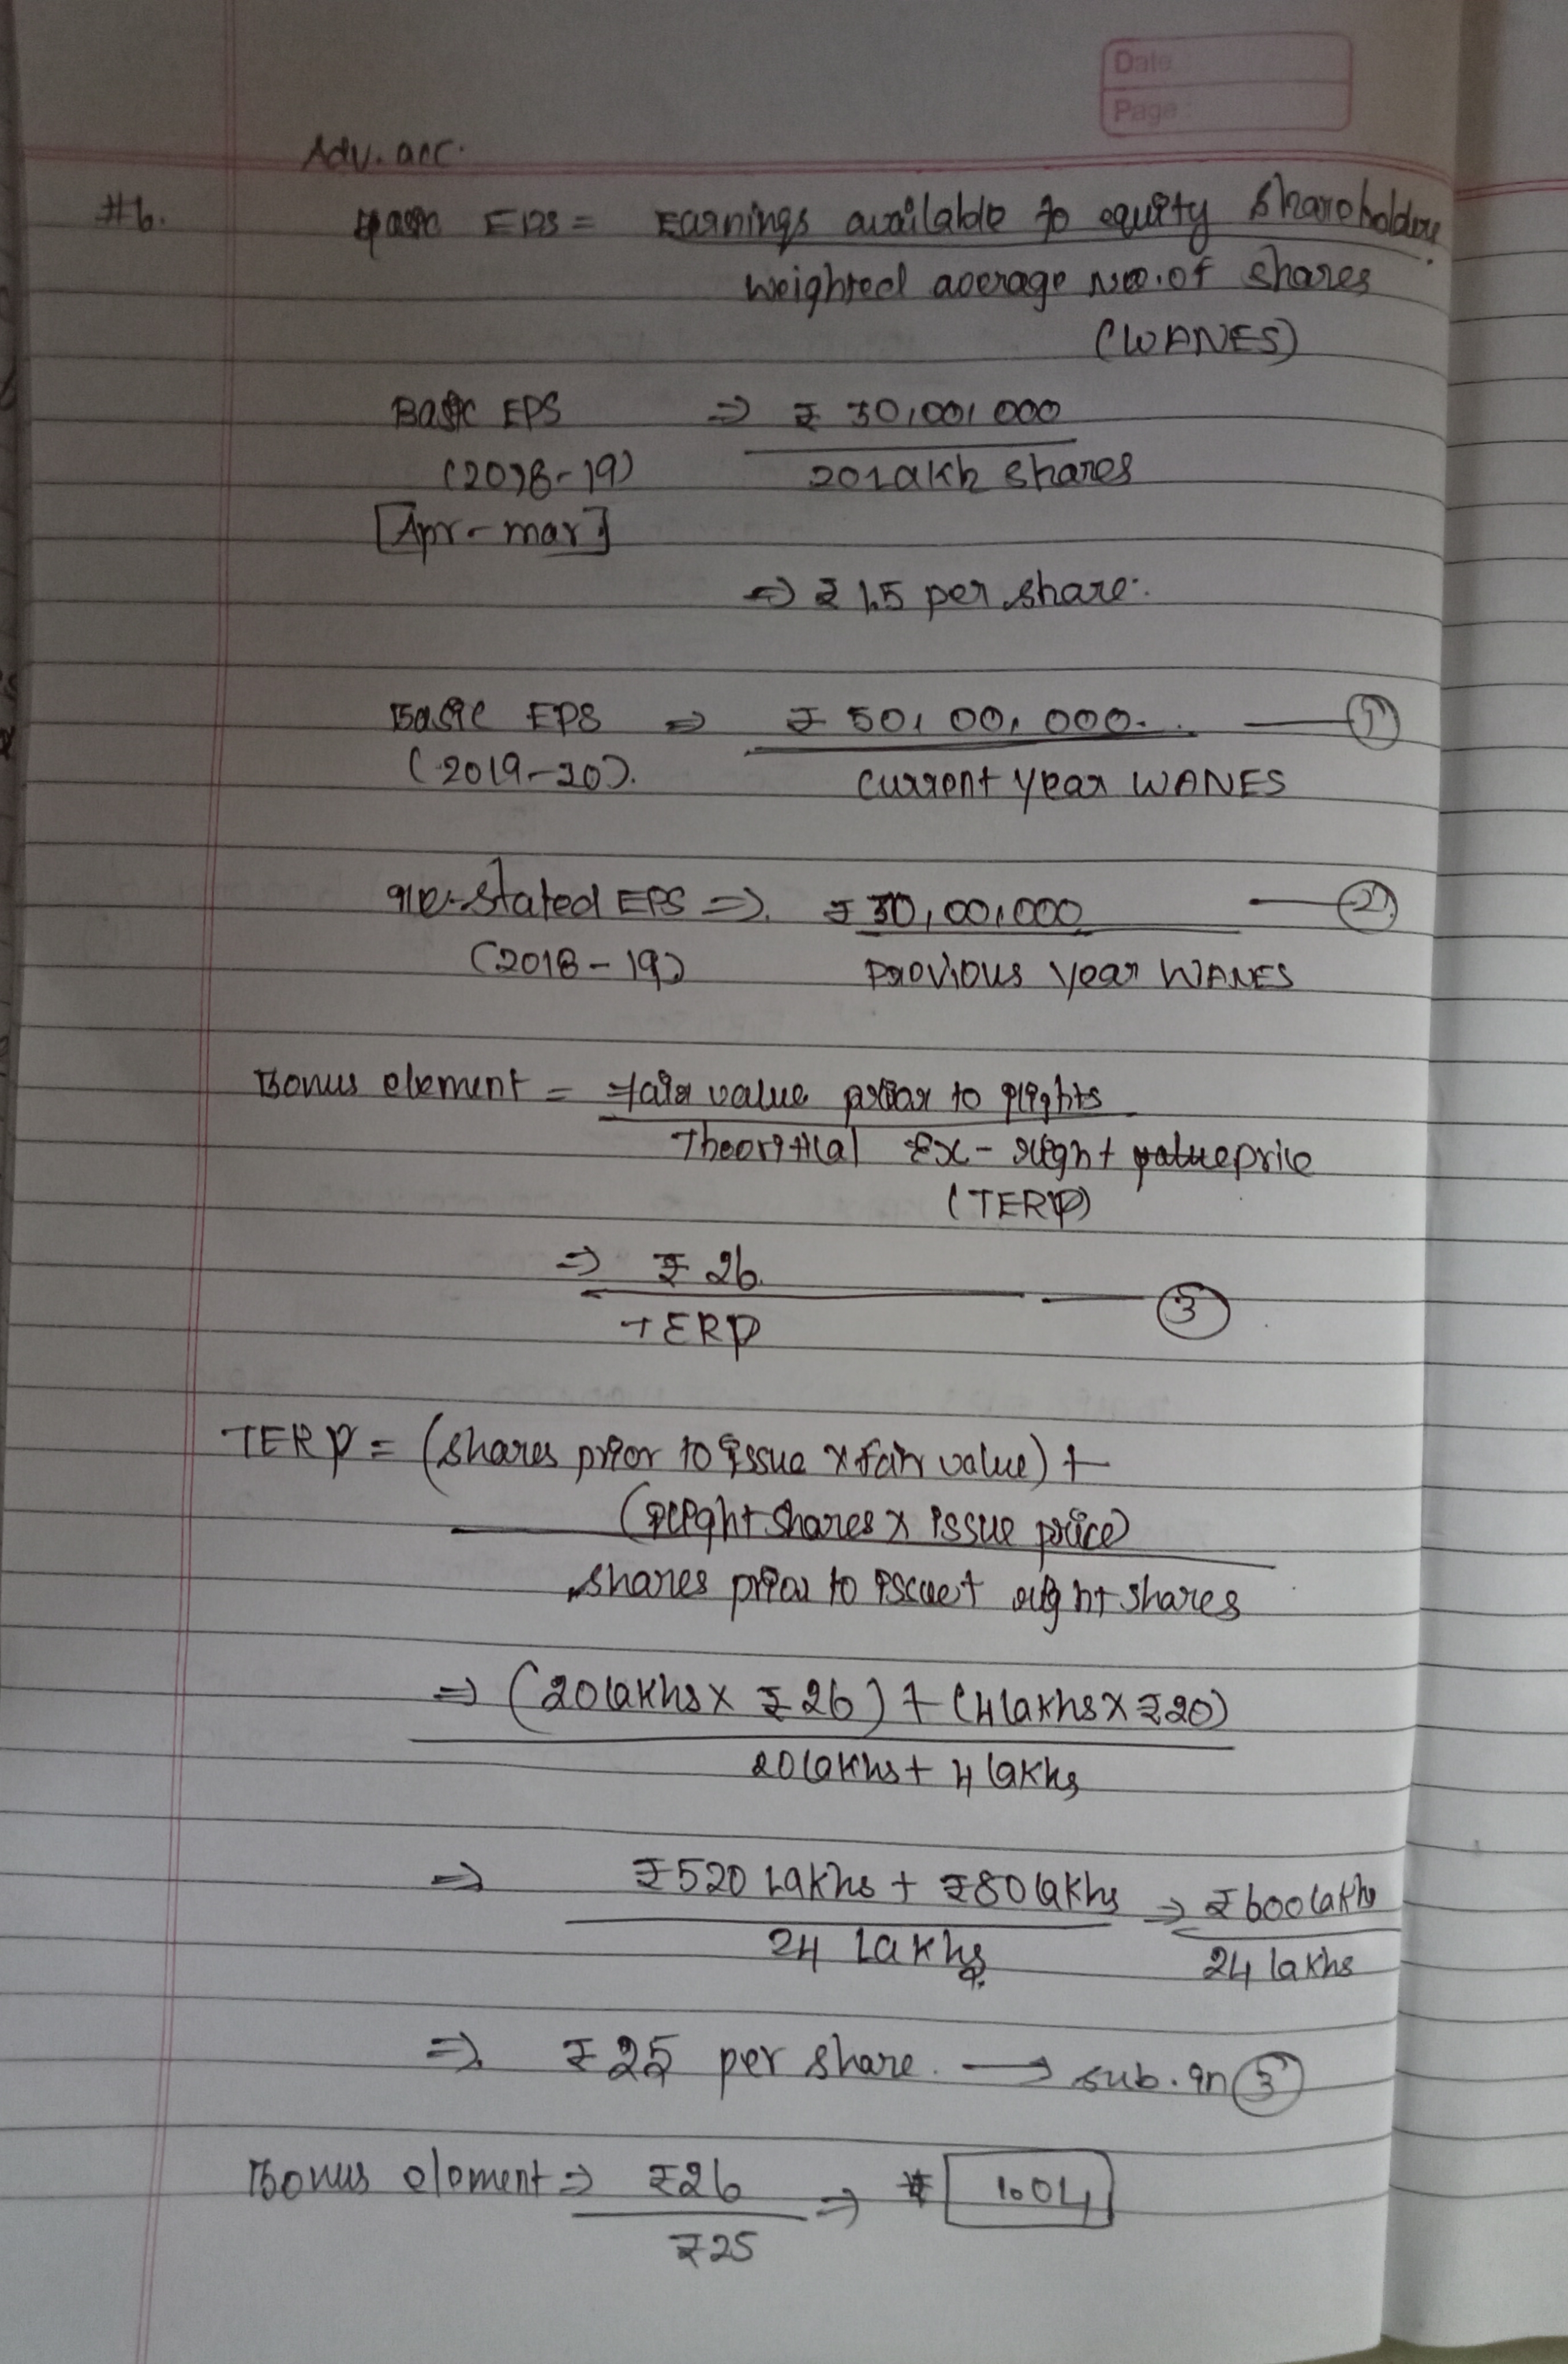 Date
Page:
Adv. acc.
#6. Basic EPS = Earnings available to equity shareholders
weighted average No. of shares
(WANES)
Basic EPS ⇒ ₹ 30,00,000
(2018-19) 20 lakh shares
[Apr - mar]
⇒ ₹ 1.5 per share.
Basic EPS ⇒ ₹ 50,00,000. ①
(2019-20). Current year WANES
Re-stated EPS ⇒ ₹ 30,00,000 ②
(2018-19) Previous year WANES
Bonus element = fair value prior to rights
Theoritical Ex-right value price
(TERP)
⇒ ₹ 26
TERP ③
TERP = (shares prior to issue x fair value) +
(right shares x issue price)
shares prior to issue + right shares
⇒ (20 lakhs x ₹ 26) + (4 lakhs x ₹20)
20 lakhs + 4 lakhs
⇒ ₹520 lakhs + ₹80 lakhs ⇒ ₹600 lakhs
24 Lakhs 24 lakhs
⇒ ₹ 25 per share. → sub. in ③
Bonus element ⇒ ₹26 ⇒ 1.04
₹25